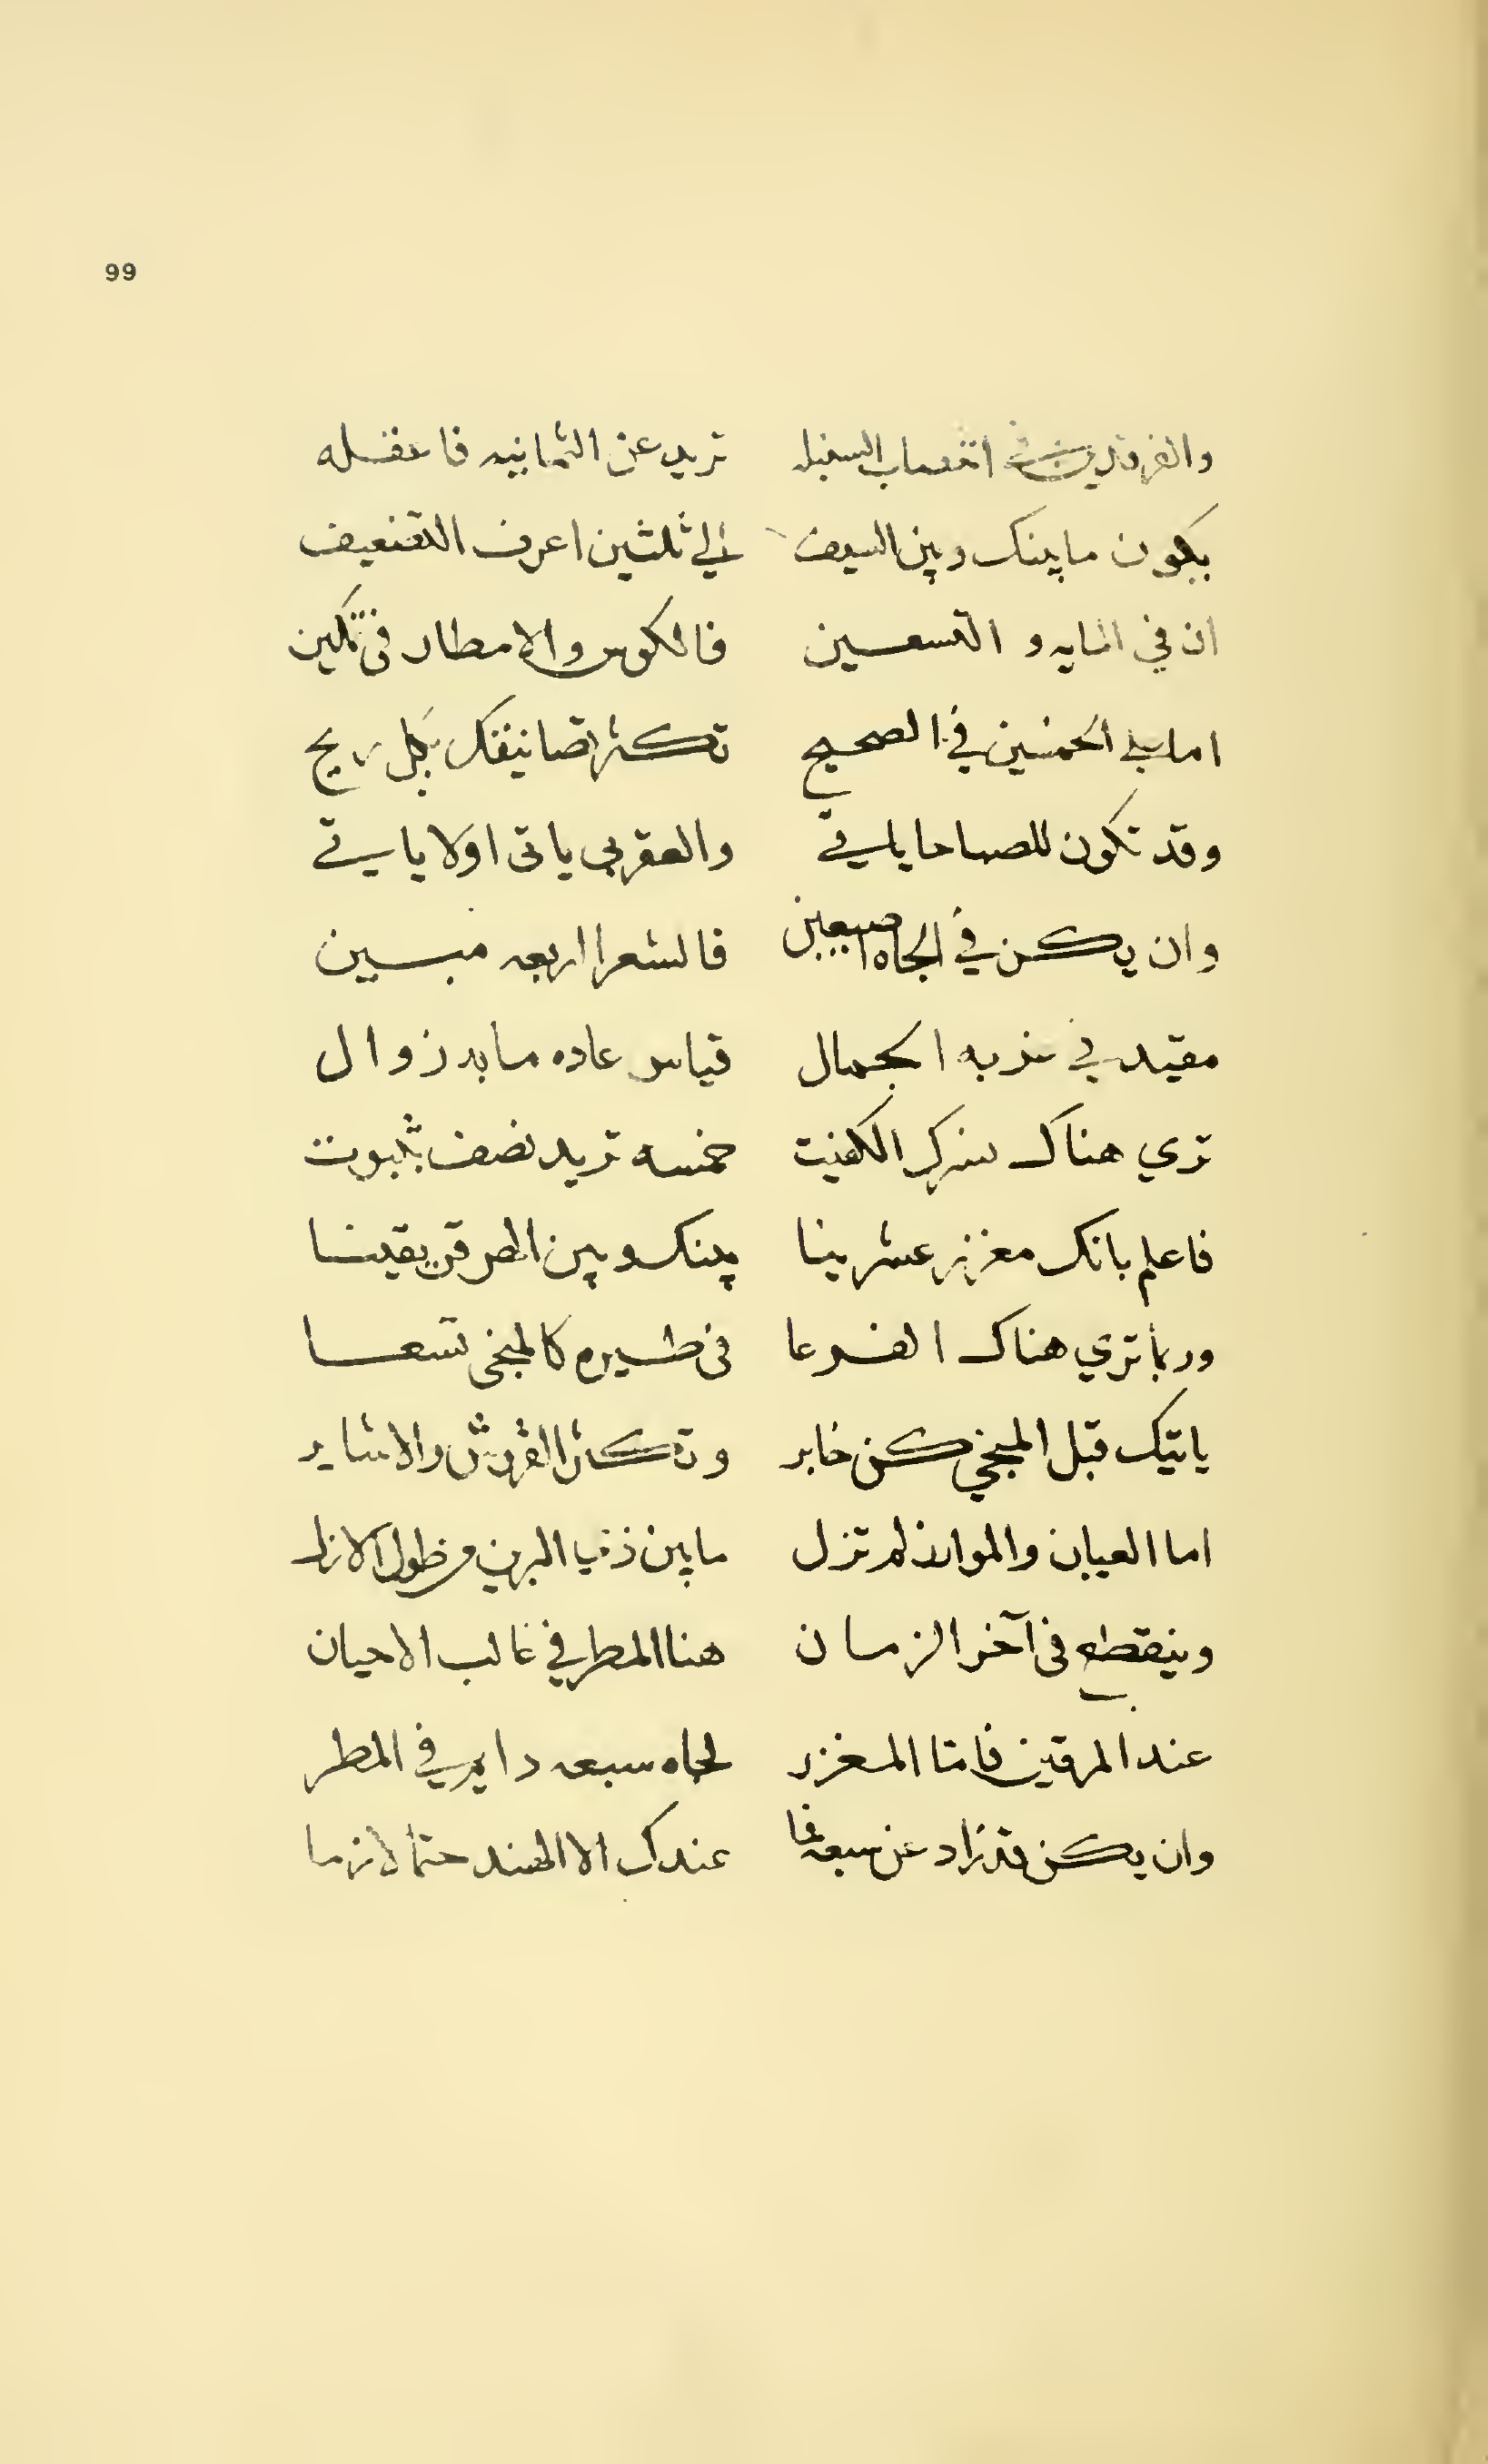 99
والفرقدين في انتصاب السنبله تزيد عن الثمانيه فاعقله
يكون مابينك وبين السيف الي ثلثين اعرف التضعيف
ان في المايه و التسعين فالكوس والامطار في تمكين
اما يلي الخمسين في الصحيح تكثر تصانيفك بكل ريح
وقد تكون للصباحا ياتي والعقربي ياتي اولا ياتي
وان يكن في الجاه اصبعين فالشعرا اربعه مبين
مقيد في ضربه الجمال قياس عاده مابه زوال
تري هناك الكفيت خمسه تزيد نصف بثبوت
فاعلم بانك مغزر عشرينا بينك وبين المطرقين يقينا
وربما تري هناك الفرعا في طيره كالمنجي تسعا
ياتيك قبل المنجي كن خابر وتكثر القروش والاشاير
اما العيبان والموارز لم تزل مابين ذئيبا البر في طول الازل
وينقطع في آخر الزمان هنا المطر في غالب الاحيان
عند المرقين فامتا المغزر لجاه سبعه دايم في المطر
وان يكن قد زاد عن سبعه فما عندك الا الهند حتما لازما